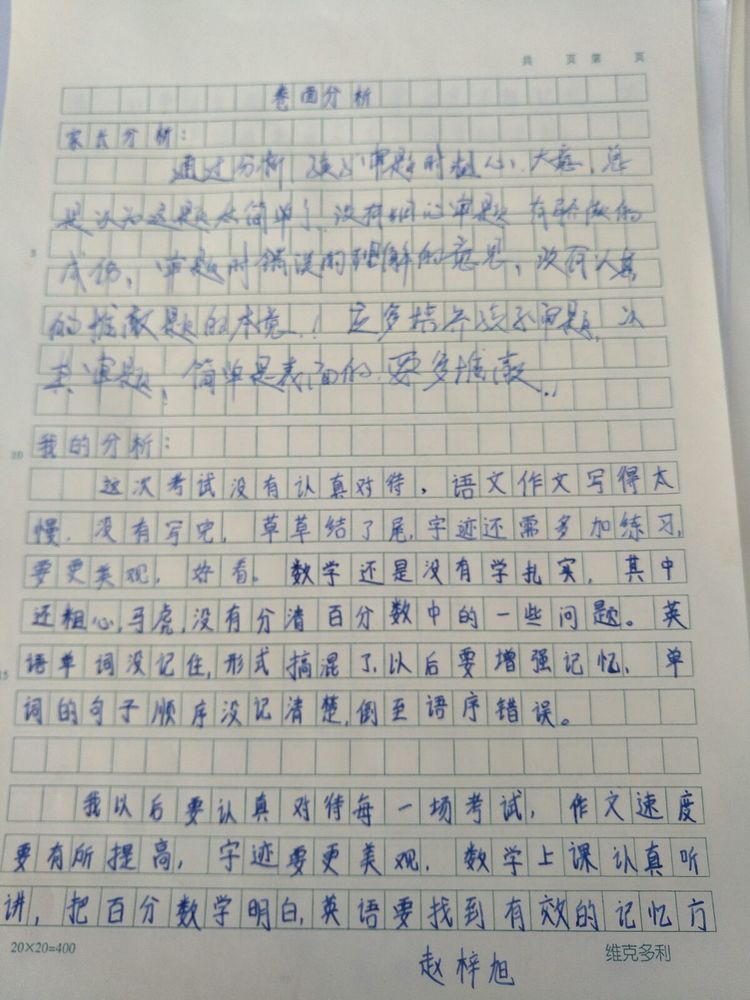 共 页 第 页
卷面分析
家长分析：
通过分析，孩子审题时粗心、大意，总
是认为这题太简单了，没有细心审题，有骄傲的
成份，审题时错误的理解的意思，没有认真
的推敲题的本意！应多培养孩子审题，认
真审题，简单是表面的，要多推敲。
我的分析：
这次考试没有认真对待，语文作文写得太
慢，没有写完，草草结了尾，字迹还需多加练习，
要更美观，好看。数学还是没有学扎实，其中
还粗心，马虎，没有分清百分数中的一些问题。英
语单词没记住，形式搞混了，以后要增强记忆，单
词的句子顺序没记清楚，倒至语序错误。
我以后要认真对待每一场考试，作文速度
要有所提高，字迹要更美观，数学上课认真听
讲，把百分数学明白，英语要找到有效的记忆方
20×20=400 维克多利
赵梓旭
5
10
15